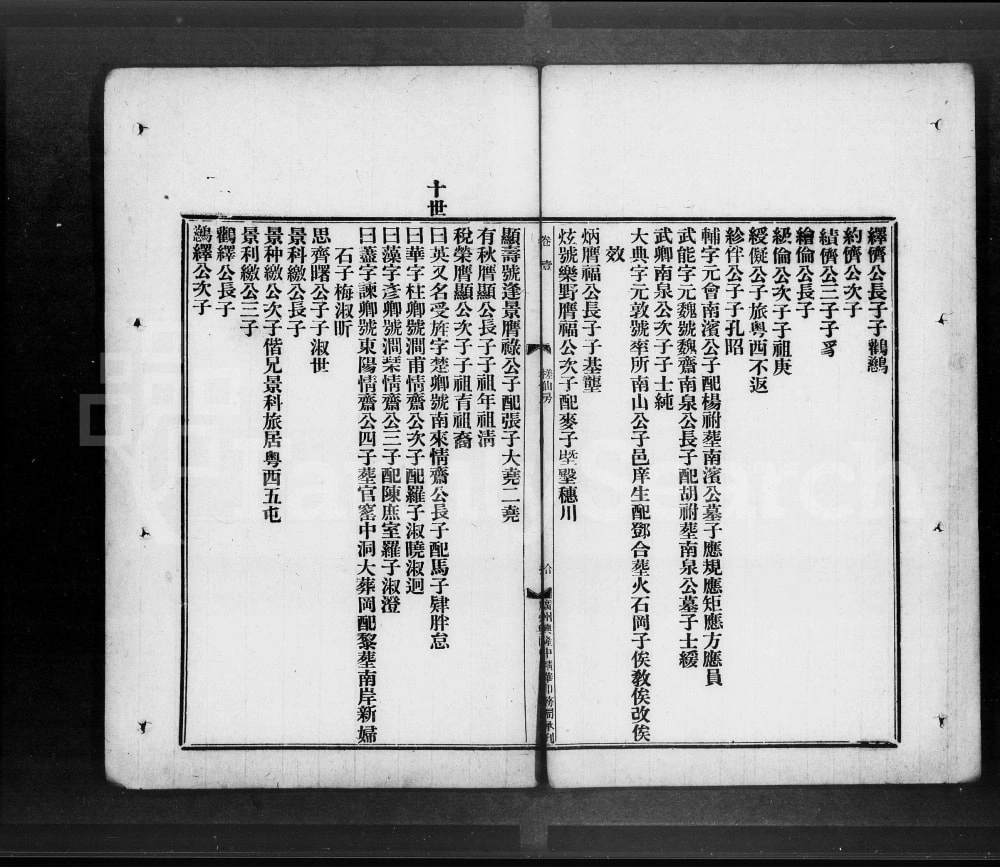 繹儕公長子子鸛鷀
約儕公次子
績儕公三子子爲
繪倫公長子
綛倫公次子子祖庚
綬儗公子旅粤西不返
紾伴公子子孔昭
輔字元會南濱公子配楊祔塟南濱公墓子應規應矩應方應員
武能字元魏號魏齋南泉公長子配胡祔塟南泉公墓子士緩
武卿南泉公次子子士純
大典字元敦號率所南山公子邑庠生配鄧合塟火石岡子俟教俟改俟
效
炳膺福公長子子基壟
炫號樂野膺福公次子配麥子墍墾穗川
卷壹
桂仙房
拾
顯壽號逢景膺祿公子配張子大堯二堯
有秋膺顯公長子子祖年祖淸
稅榮膺顯公次子子祖有祖裔
十世
曰英又名受旌字楚卿號南來情齋公長子配馬子肄胖怠
曰華字柱卿號澗甫情齋公次子配羅子淑曉淑迥
曰藻字彥卿號澗琹情齋公三子配陳庶室羅子淑澄
曰蓋字諫卿號東陽情齋公四子塟官窰中洞大葬岡配黎塟南岸新婦
石子梅淑昕
思齊曙公子子淑世
景科繳公長子
景种繳公次子偕兄景科旅居粤西五屯
景利繳公三子
鸛繹公長子
鷀繹公次子